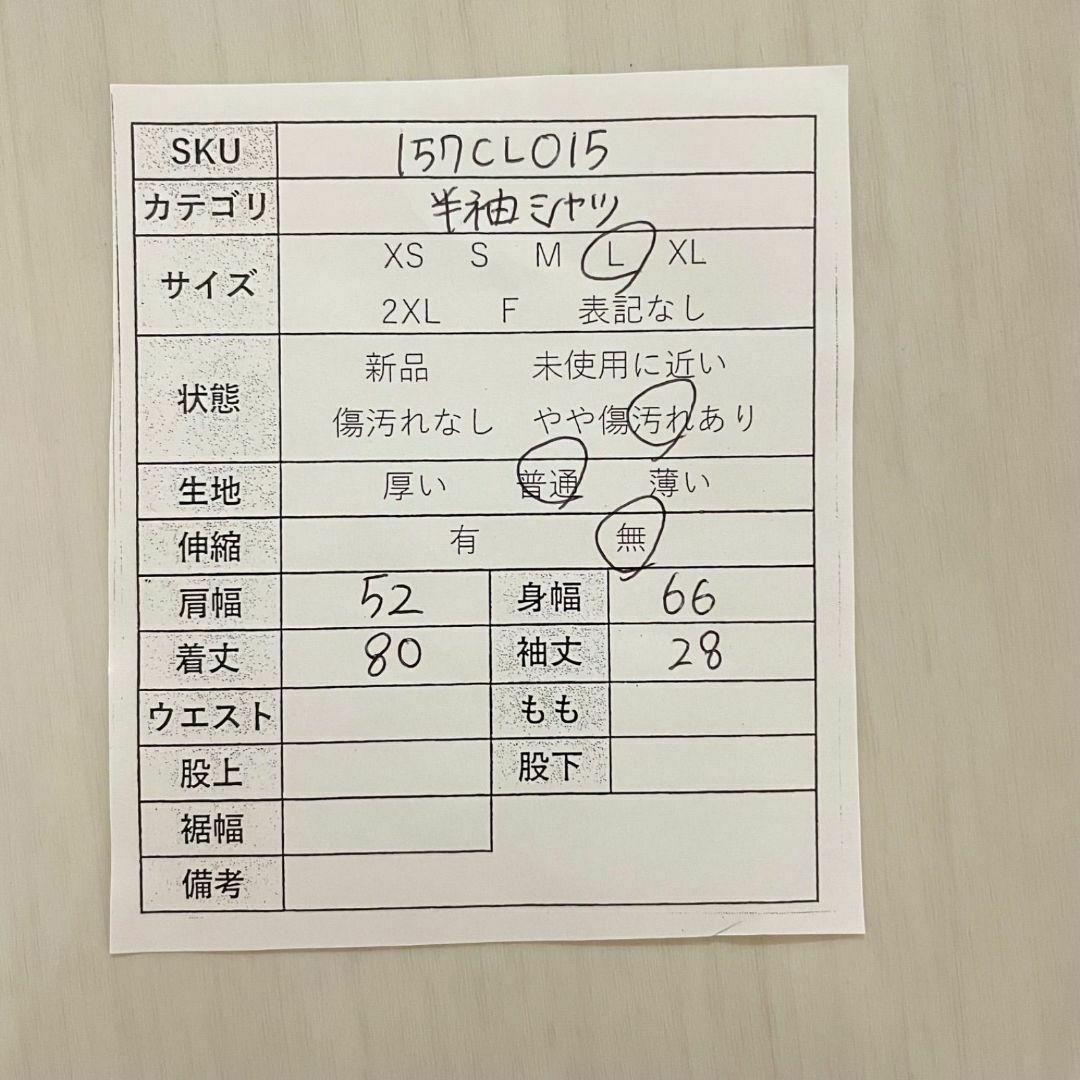 SKU 157CL015
カテゴリ 半袖シャツ
サイズ XS S M L XL
2XL F 表記なし
状態 新品 未使用に近い
傷汚れなし やや傷汚れあり
生地 厚い 普通 薄い
伸縮 有 無
肩幅 52 身幅 66
着丈 80 袖丈 28
ウエスト もも
股上 股下
裾幅
備考